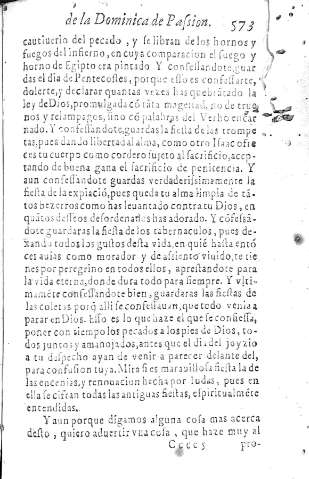 de la Dominica de Passion. 573
cautiuerio del pecado, y se libran de los hornos y
fuegos del infierno, en cuya comparacion el fuego y
horno de Egipto era pintado Y confessandote, guar
das el dia de Pentecostes, porque esso es confessarte,
dolerte, y declarar quantas vezes has quebrãtado la
ley de Dios, promulgada cõ tãta magestad, no de true
nos y relampagos, sino cõ palabras del Verbo encar
nado. Y confessandote, guardas la fiesta de las trompe
tas, pues dando libertad al alma, como otro Isaac ofre
ces tu cuerpo como cordero sujeto al sacrificio, acep-
tando de buena gana el sacrificio de penitencia. Y
aun confessandote guardas verdaderissimamente la
fiesta de la expiaciõ, pues queda tu alma limpia de tã-
tos bezerros como has leuantado contra tu Dios, en
quãtos desseos desordenados has adorado. Y cõfessã-
dote guardaras la fiesta de los tabernaculos, pues de-
xando todos los gustos desta vida, en quiē hasta entõ
ces auias como morador y de assiento viuido, te tie
nes por peregrino en todos ellos, aprestandote para
la vida eterna, donde dura todo para siempre. Y vlti-
mamēte confessandote bien, guardaras las fiestas de
las coletas porq̃ alli se confessauan, que todo venia a
parar en Dios. Esso es lo que haze el que se confiessa,
poner con tiempo los pecados a los pies de Dios, to-
dos juntos y amanojados, antes que el dia del joyzio
a tu despecho ayan de venir a parecer delante del,
para confusion tuya. Mira si es marauillosa fiesta la de
las encenias, y renouacion hecha por Iudas, pues en
ella se cifran todas las antiguas fiestas, espiritualmēte
entendidas.
Y aun porque digamos alguna cosa mas acerca
desto, quiero aduertir vna cosa, que haze muy al
Cccc 5 pro-